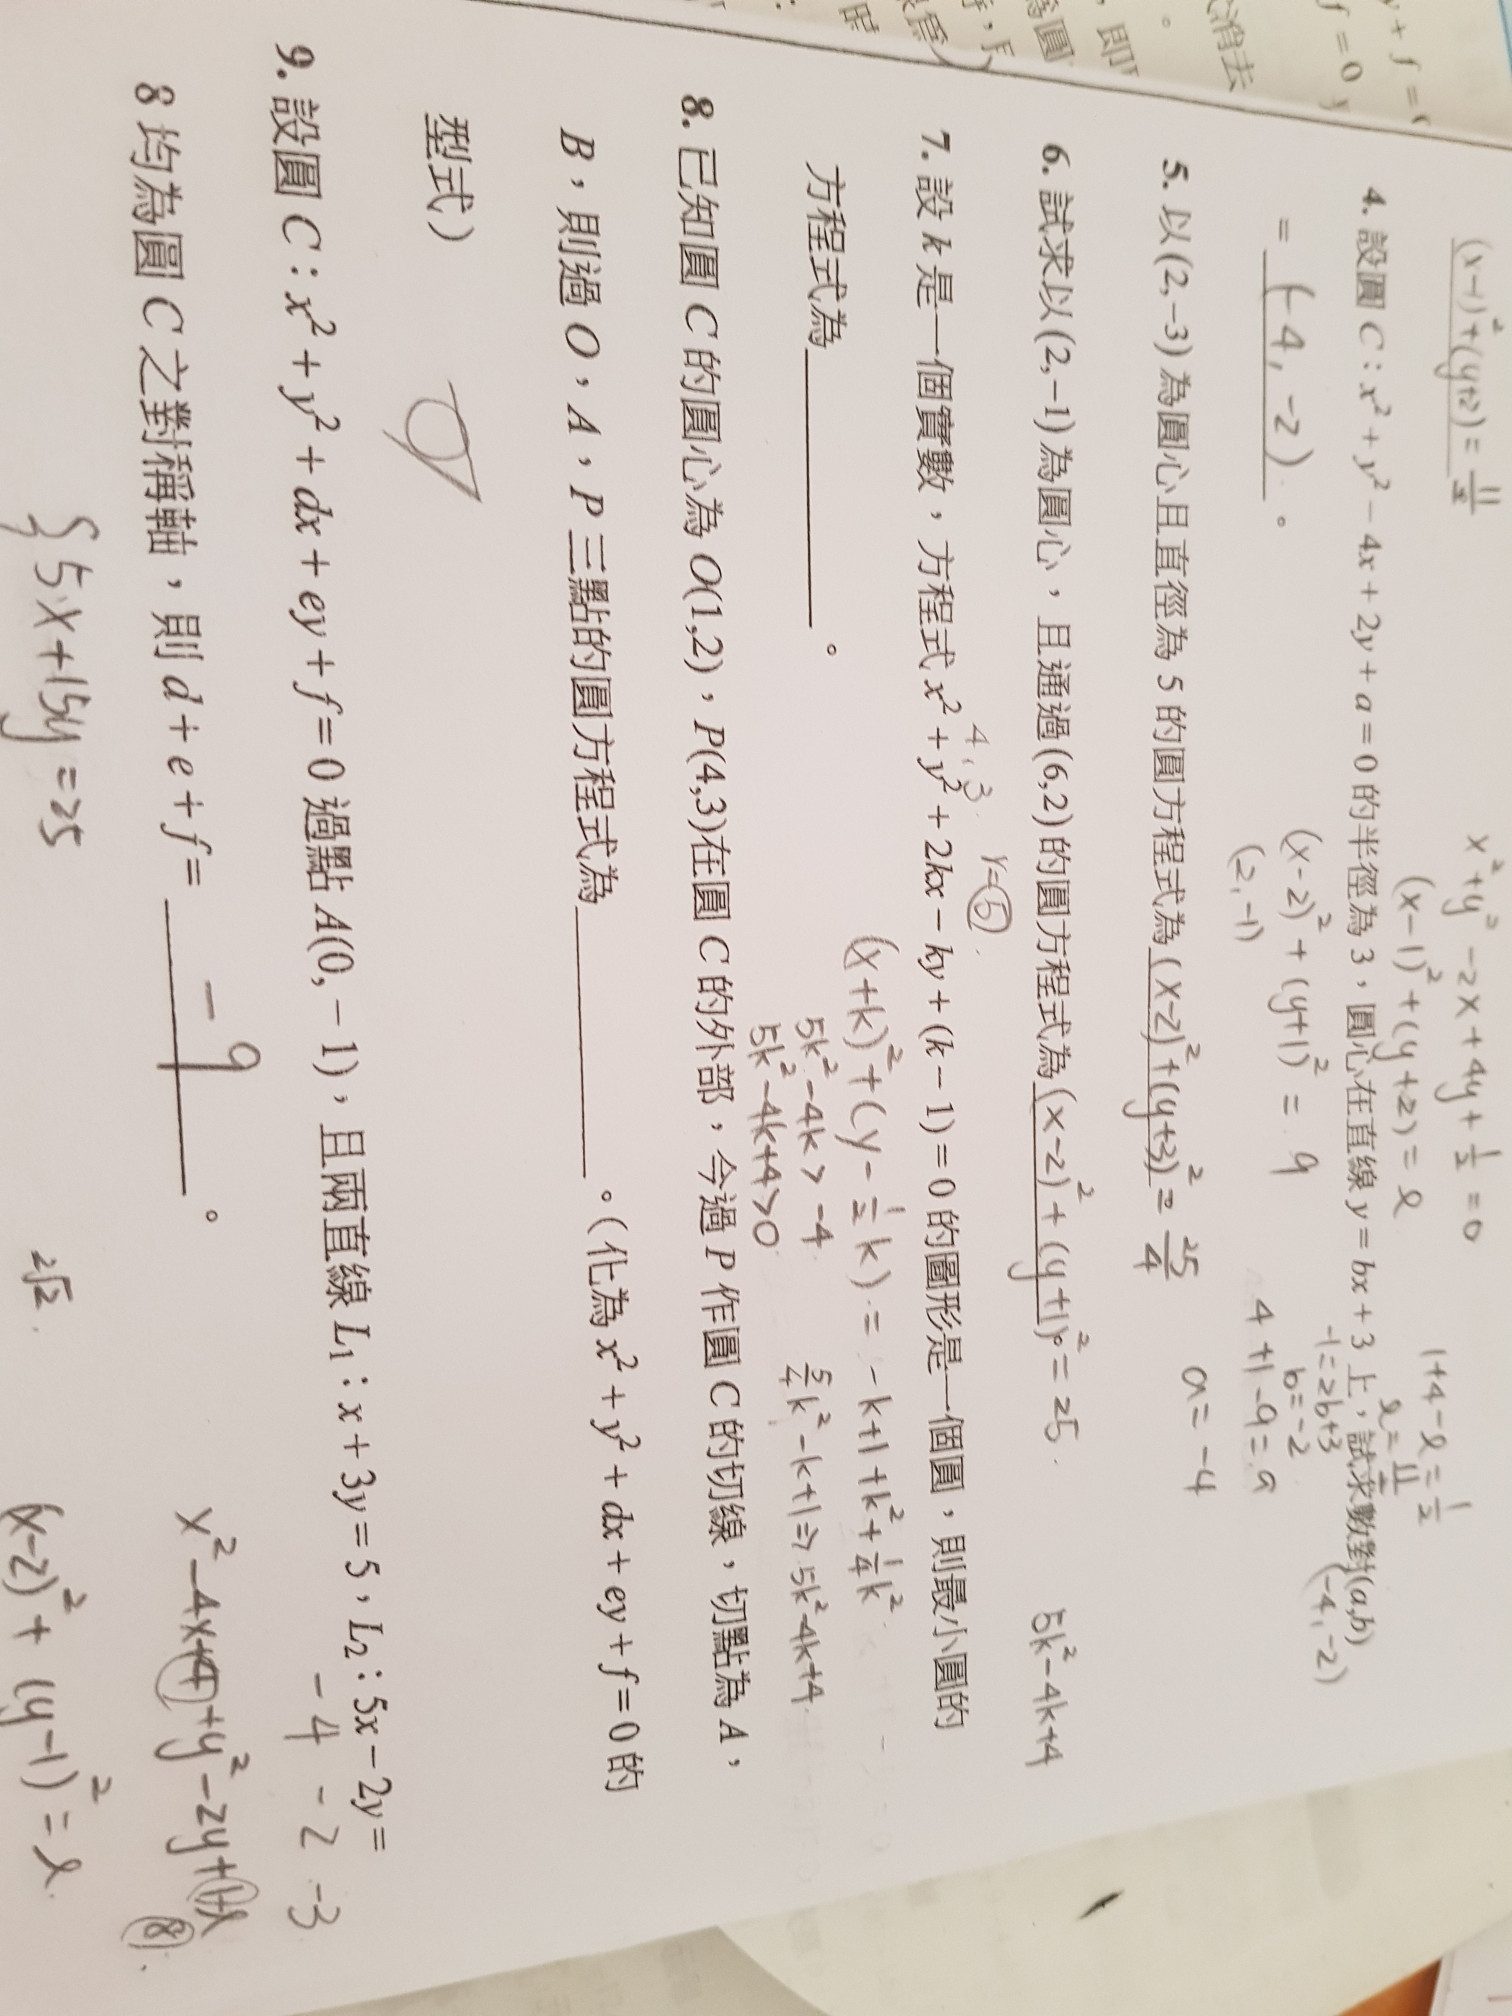 y + f = 0
f = 0
消去
。
，即
為圓
(x-1)²+(y+2)²=11/2
x²+y²-2x+4y+1/2=0
(x-1)²+(y+2)=l
1+4-l=1/2
l=11/2
4. 設圓 C : x² + y² - 4x + 2y + a = 0 的半徑為 3，圓心在直線 y = bx + 3 上，試求數對(a,b)
= (-4, -2) 。
(x-2)²+(y+1)²=9
(2,-1)
-1=2b+3
b=-2
4+1-9=a
a=-4
(-4,-2)
5. 以(2,-3)為圓心且直徑為 5 的圓方程式為(x-2)²+(y+3)²=25/4
6. 試求以(2,-1)為圓心，且通過(6,2)的圓方程式為(x-2)²+(y+1)²=25.
4,3 r=5.
5k²-4k+4
7. 設 k 是一個實數，方程式 x² + y² + 2kx - ky + (k - 1) = 0 的圖形是一個圓，則最小圓的
方程式為 。
(x+k)²+(y-1/2k)=-k+1+k²+1/4k²
5k²-4k>-4
5k²-4k+4>0
5/4k²-k+1⇒5k²-4k+4
8. 已知圓 C 的圓心為 O(1,2)，P(4,3)在圓 C 的外部，今過 P 作圓 C 的切線，切點為 A，
B，則過 O，A，P 三點的圓方程式為 。（化為 x² + y² + dx + ey + f = 0 的
型式）
9. 設圓 C : x² + y² + dx + ey + f = 0 過點 A(0, - 1)，且兩直線 L₁ : x + 3y = 5，L₂ : 5x - 2y =
8 均為圓 C 之對稱軸，則 d + e + f = -9 。
-4 -2 -3
x²-4x+4+y²-2y+1=
8
5x+15y=25
2√2.
(x-2)²+(y-1)²=l.